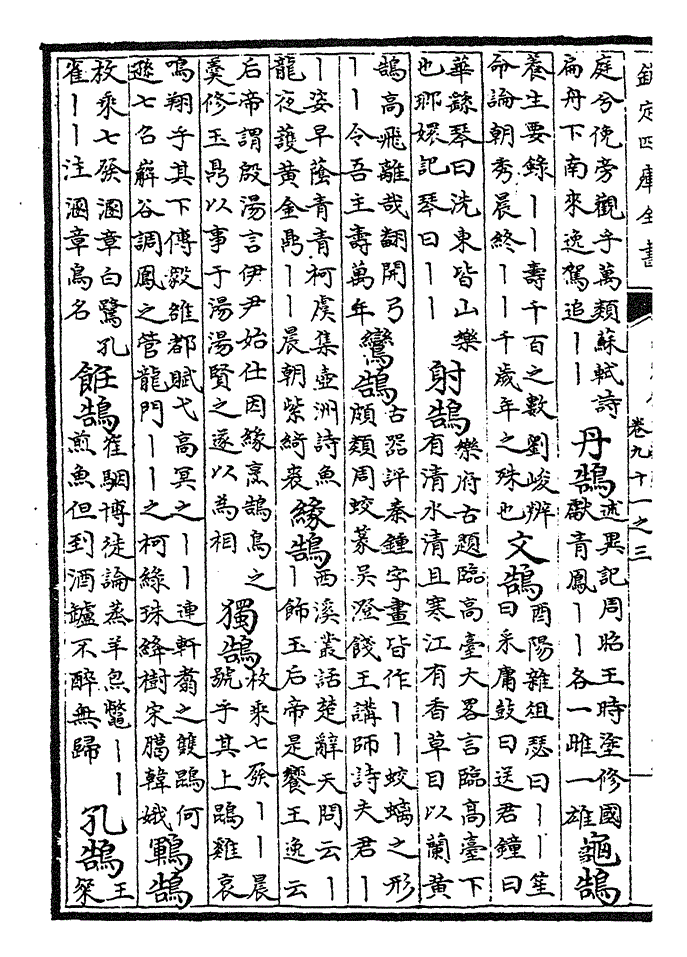 欽定四庫全書
卷九十一之三
庭兮俛旁觀乎萬類蘇軾詩
扁舟下南來逸駕追丨丨
丹鵠
述異記周昭王時塗修國
獻青鳳丨丨各一雌一雄
龜鵠
養生要錄丨丨壽千百之數劉峻辨
命論朝秀晨終丨丨千歲年之殊也
文鵠
酉陽雜俎瑟曰丨丨笙
曰采庸鼓曰送君鐘曰
華琴曰洗東皆山樂
也瑯嬛記琴曰丨丨
射鵠
樂府古題臨高臺大畧言臨高臺下
有清水清且寒江有香草目以蘭黄
鵠高飛離哉翻開弓
丨丨令吾主壽萬年
鸞鵠
古器評秦鍾字畫皆作丨丨蛟螭之形
頗類周蛟篆吳澄餞王講師詩夫君丨
丨姿早蔭青青柯虞集壺洲詩魚
龍夜護黄金鼎丨丨晨朝紫綺裘
緣鵠
西溪叢話楚辭天問云丨
丨飾玉后帝是饗王逸云
后帝謂殷湯言伊尹始仕因緣烹鵠鳥之
羮修玉鼎以事于湯湯賢之遂以為相
獨鵠
枚乘七發丨丨晨
號乎其上鵾雞哀
鳴翔乎其下傅毅雒都賦弋高冥之丨丨連軒翥之雙鵾何
遜七召嶰谷調鳳之管龍門丨丨之柯綠珠絳樹宋臈韓娥
鶤鵠
枚乘七發溷章白鷺孔
雀丨丨注溷章鳥名
飪鵠
崔駰博徒論蒸羊炰鱉丨丨
煎魚但到酒罏不醉無歸
孔鵠
王
粲